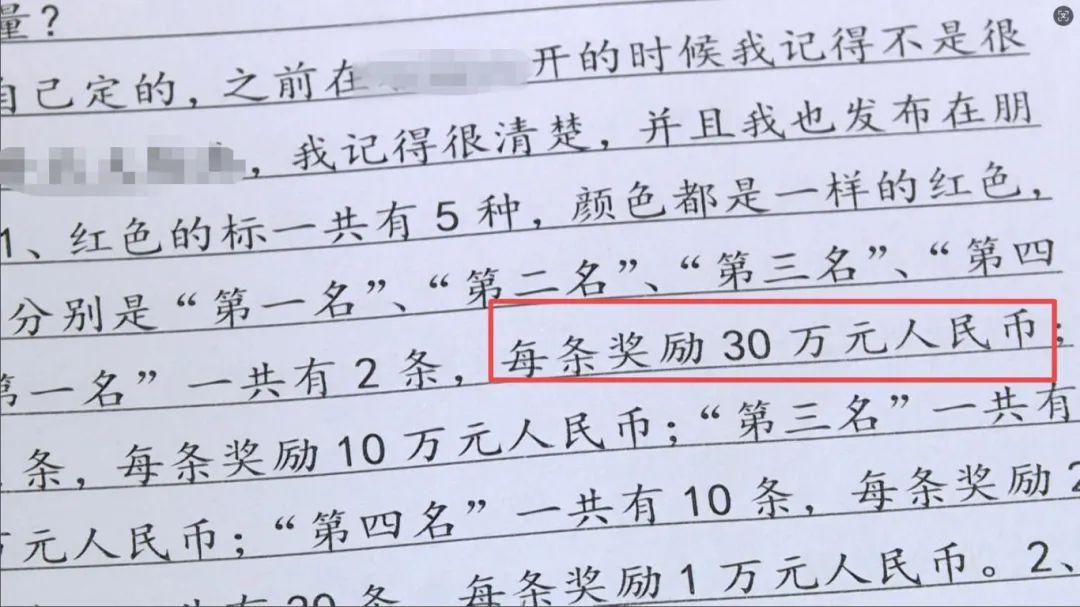 量？
自己定的，之前在 开的时候我记得不是很
，我记得很清楚，并且我也发布在朋
1、红色的标一共有 5 种，颜色都是一样的红色，
分别是“第一名”、“第二名”、“第三名”、“第四
第一名”一共有 2 条，每条奖励 30 万元人民币；
条，每条奖励 10 万元人民币；“第三名”一共有
万元人民币；“第四名”一共有 10 条，每条奖励 2
20 条，每条奖励 1 万元人民币。2、